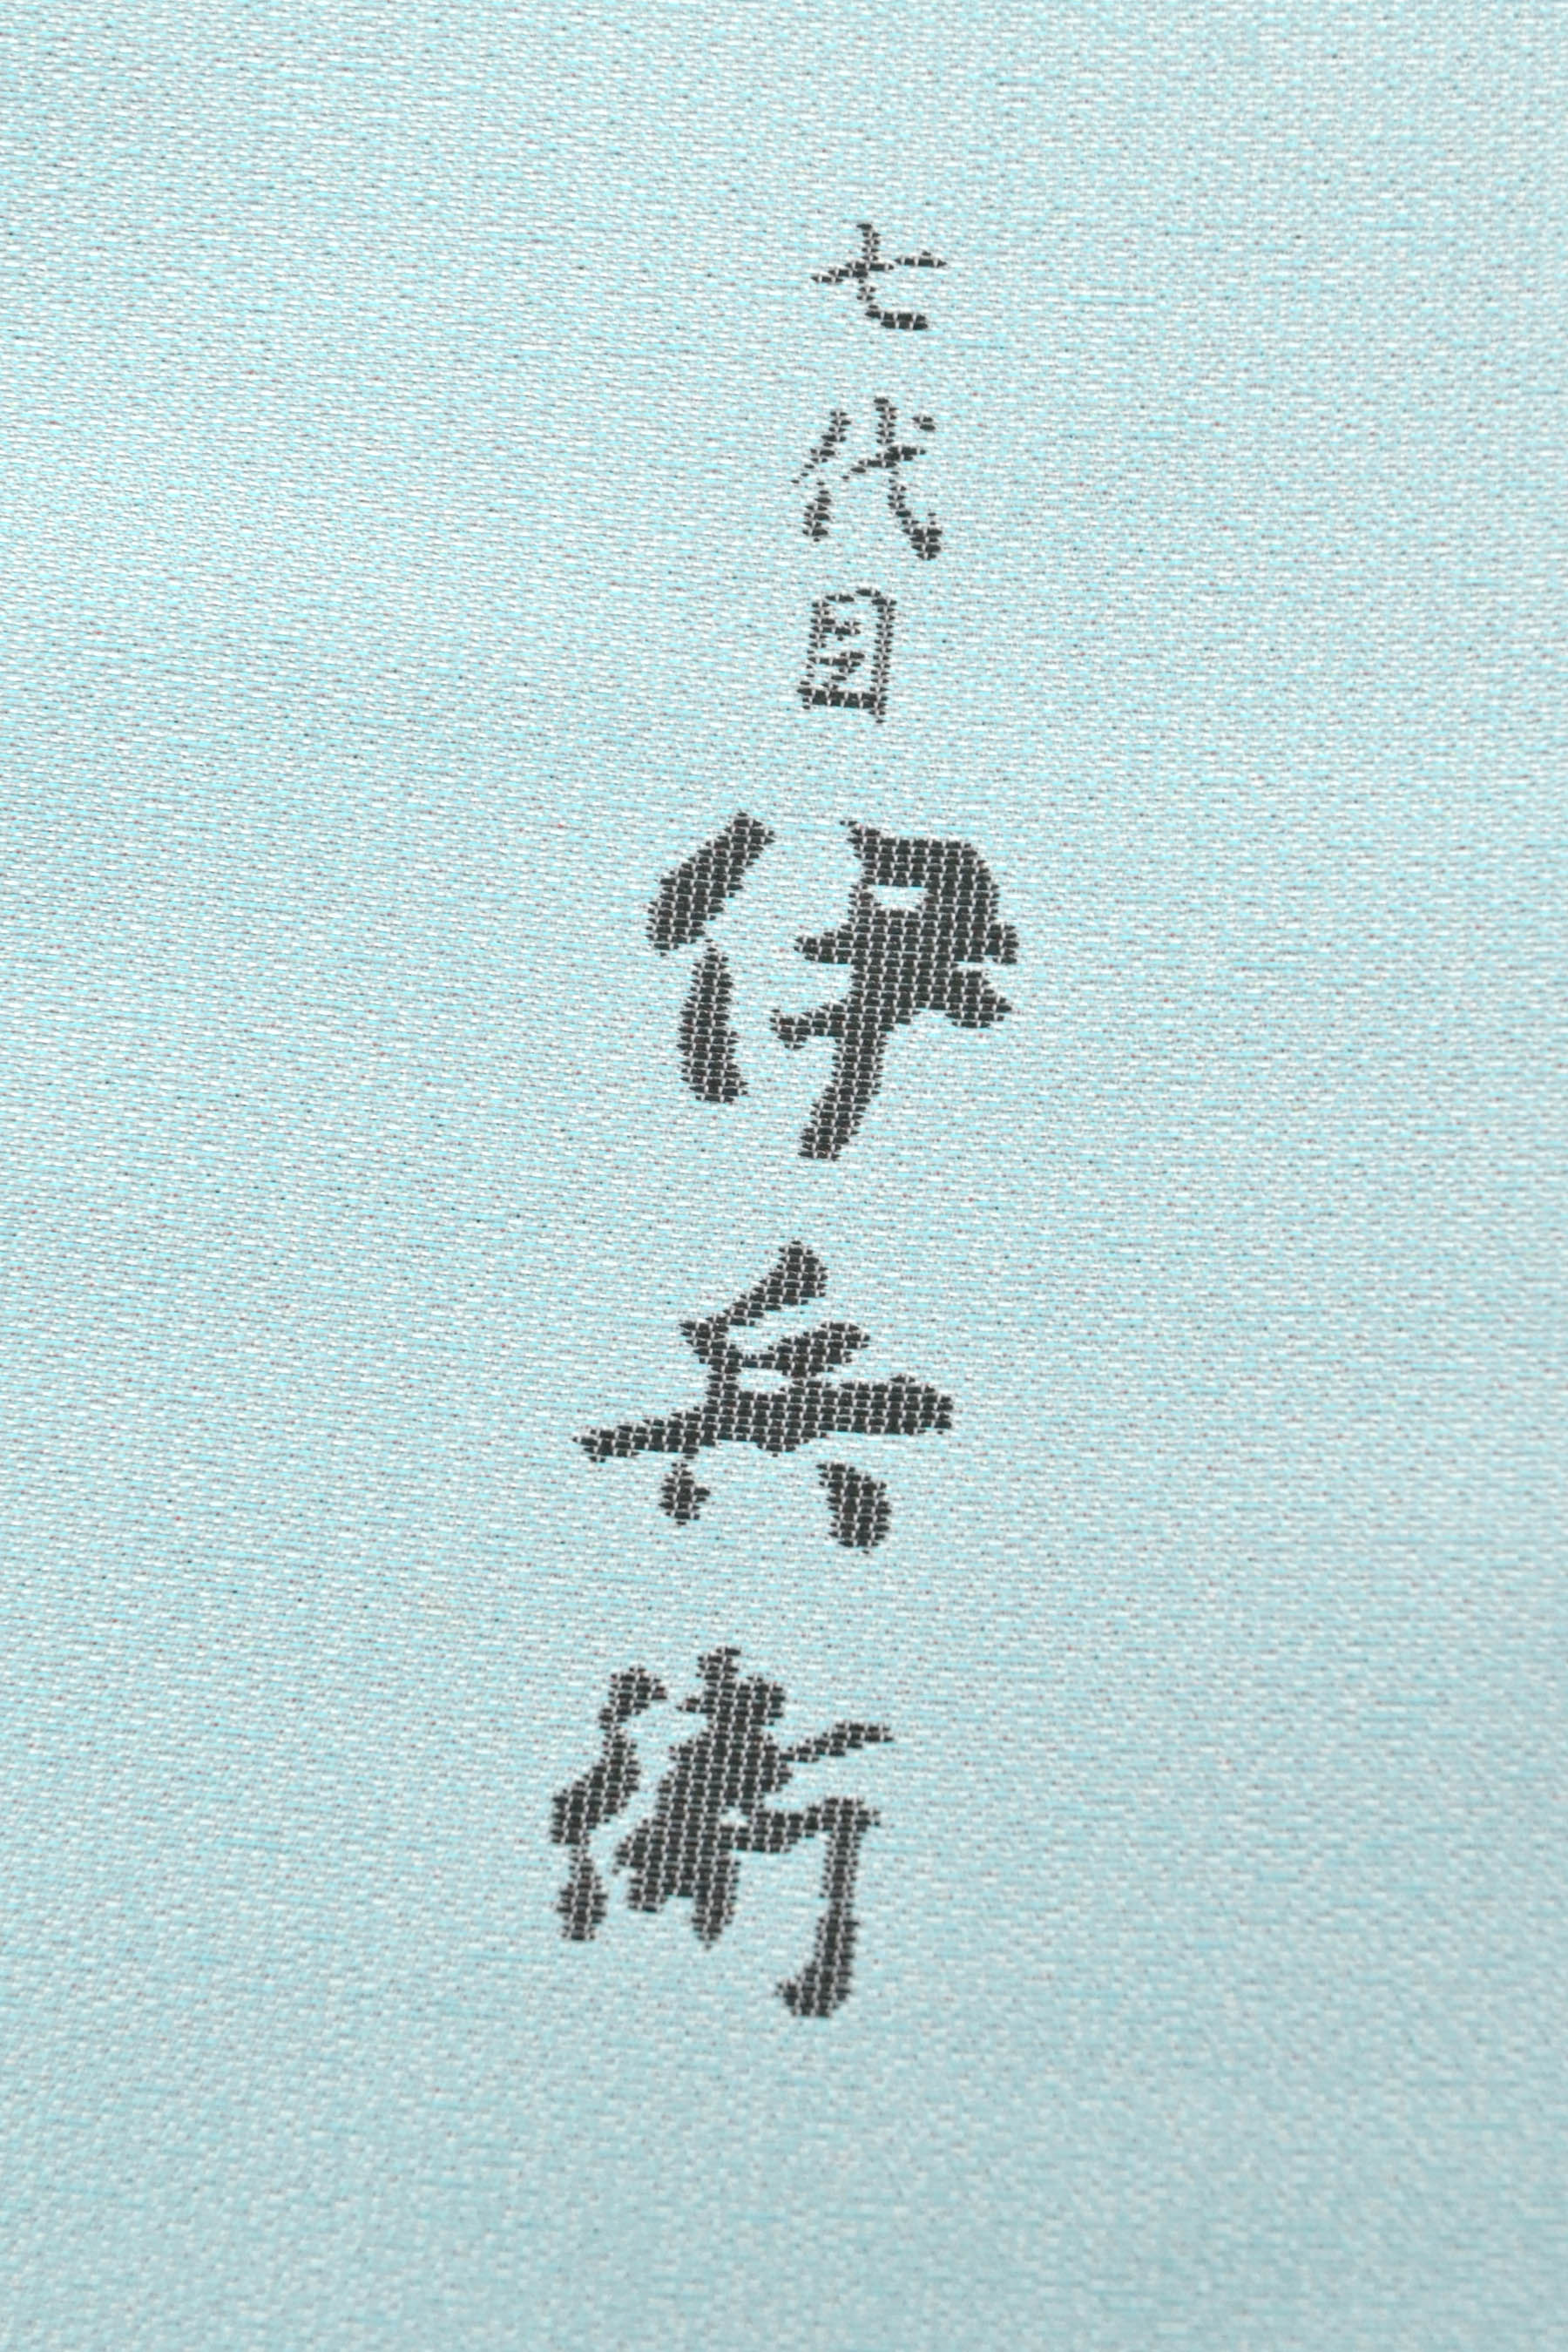 七代目伊兵衛